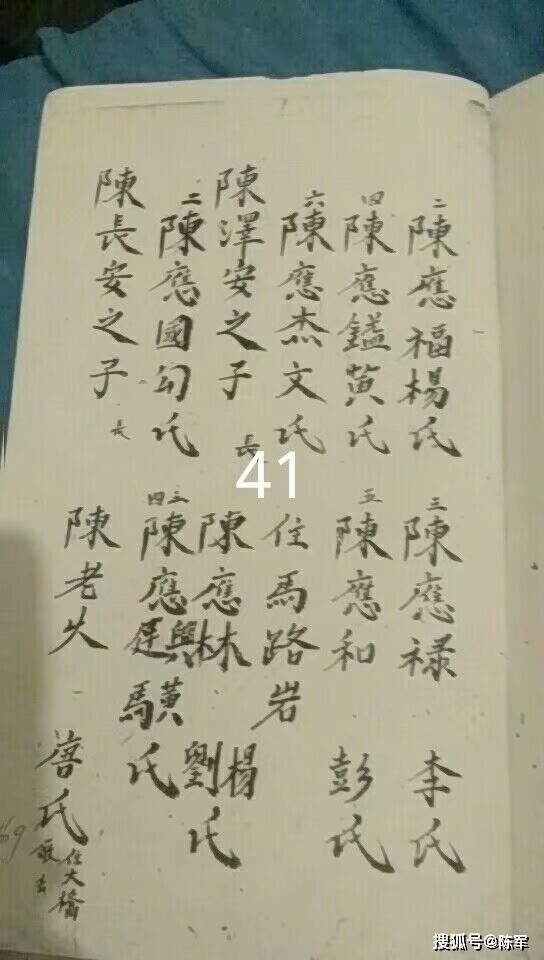 二 陳應福楊氏 三 陳應禄 李氏
四 陳應鎰黄氏 五 陳應和 彭氏
六 陳應杰文氏 住馬路岩
陳澤安之子 長 陳應林 楊劉氏
二 陳應國勾氏 三四 陳應興廷黄馬氏
陳長安之子 長 陳老 唐氏 住大橋
41
搜狐号@陈军